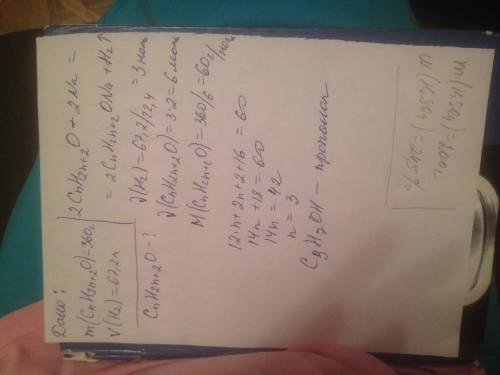 Дано:
m(CnH2n+2O)=360г
V(H2)=67,2л
CnH2n+2O-?
2CnH2n+2O+2Na=
=2CnH2n+2ONa+H2↑
ν(H2)=67,2/22,4=3 моль
ν(CnH2n+2O)=3·2=6 моль
M(CnH2n+2O)=360/6=60г/моль
12·n+2n+2+16=60
14n+18=60
14n=42
n=3
C3H7OH — пропанол